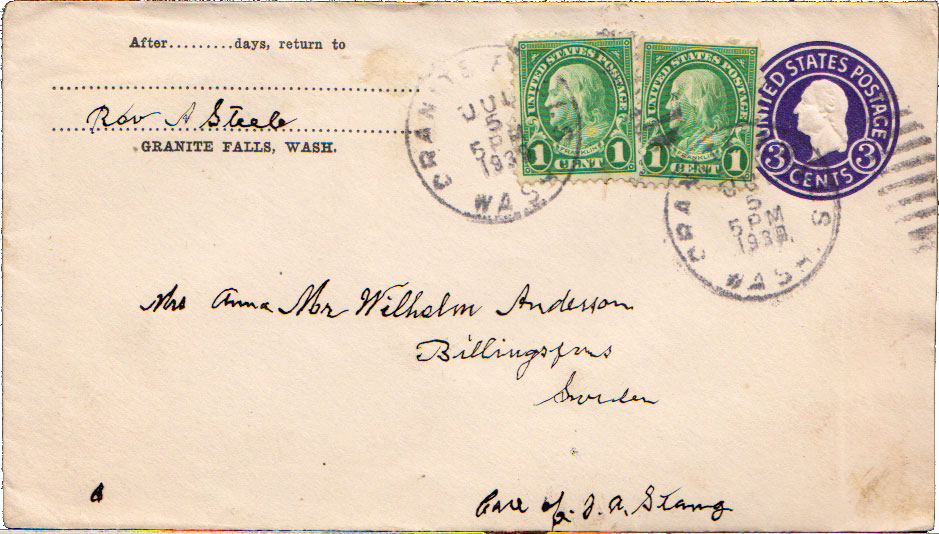 After.........days, return to
Rov A Steele
GRANITE FALLS, WASH.
UNITED STATES POSTAGE
FRANKLIN
1 CENT 1
UNITED STATES POSTAGE
FRANKLIN
1 CENT 1
UNITED STATES POSTAGE
3 CENTS 3
GRANITE FALLS
JUL
5
5 PM
WASH.
Mrs Anna Mr Wilhelm Anderson
Billingsfors
Sweden
Care of J. A. Stang